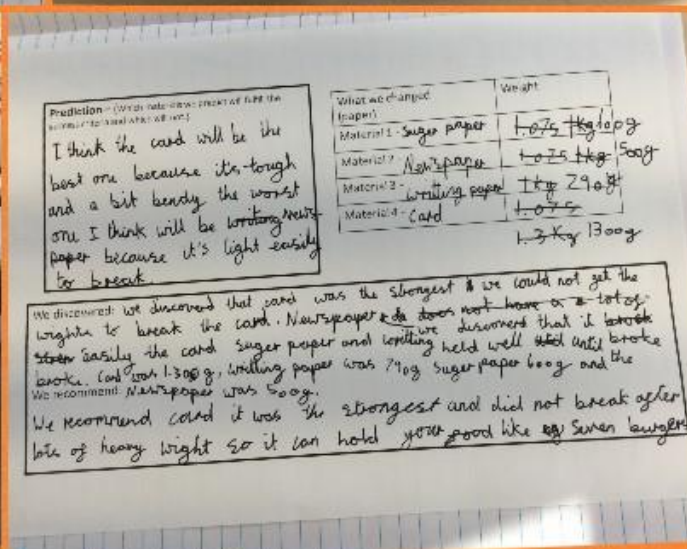 Prediction - (Which materials we predict will fulfil the
and which will not.)
I think the card will be the
best one because it's tough
and a bit bendy the worst
one I think will be writing news-
paper because it's light easily
to break.
What we changed Weight
(paper)
Material 1 - Suger paper 1.075 1kg 600g
Material 2 - Newspaper 1.075 1kg 500g
Material 3 - writting paper 1kg 790g
Material 4 - Card 1.075
1.3 Kg 1300g
We discovered: we discoverd that card was the strongest & we could not get the
wights to break the card. Newspaper does not have a lot of
easily the card suger paper and writting held well until broke
we discoverd that it broke
broke. Card was 1.300g, writting paper was 790g suger paper 600g and the
We recommend: Newspaper was 500g.
We recommend card it was the strongest and did not break after
lots of heavy wight so it can hold your food like eg Seven burgers